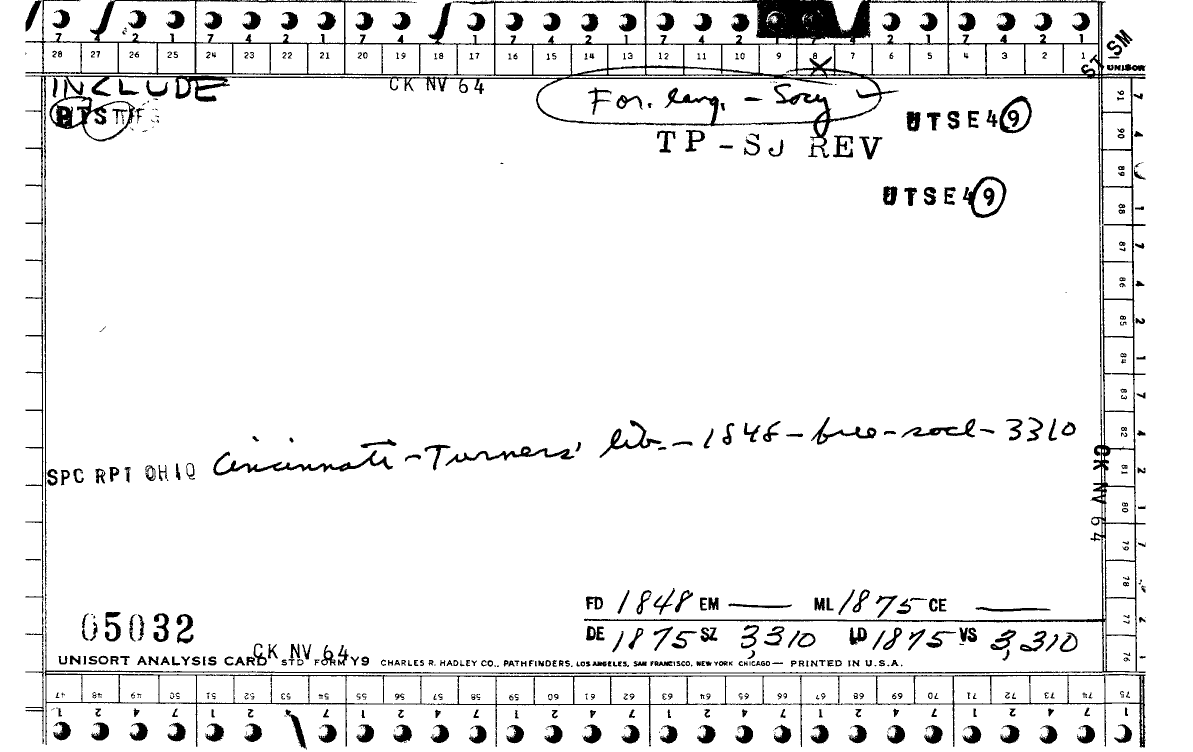 7 4 2 1 7 4 2 1 7 4 2 1 7 4 2 1 7 4 2 1 2 1 7 4 2 1
28 27 26 25 24 23 22 21 20 19 18 17 16 15 14 13 12 11 10 9 8 7 6 5 4 3 2 1
SM
UNISOR
INCLUDE
CK NV 64
For. lang. - Socy
UTSE49
TP-SJ REV
UTSE49
SPC RPT OHIO Cincinnati-Turners' lib.-1848-free-socl-3310
CK NV 64
FD 1848 EM — ML 1875 CE —
05032
DE 1875 SZ 3,310 LD 1875 VS 3,310
CK NV 64
UNISORT ANALYSIS CARD STD FORM Y9 CHARLES R. HADLEY CO., PATHFINDERS, LOS ANGELES, SAN FRANCISCO, NEW YORK CHICAGO — PRINTED IN U.S.A.
91 90 89 88 87 86 85 84 83 82 81 80 79 78 77 76
47 48 49 50 51 52 53 54 55 56 57 58 59 60 61 62 63 64 65 66 67 68 69 70 71 72 73 74 75
1 2 4 7 1 2 4 7 1 2 4 7 1 2 4 7 1 2 4 7 1 2 4 7 1 2 4 7 1